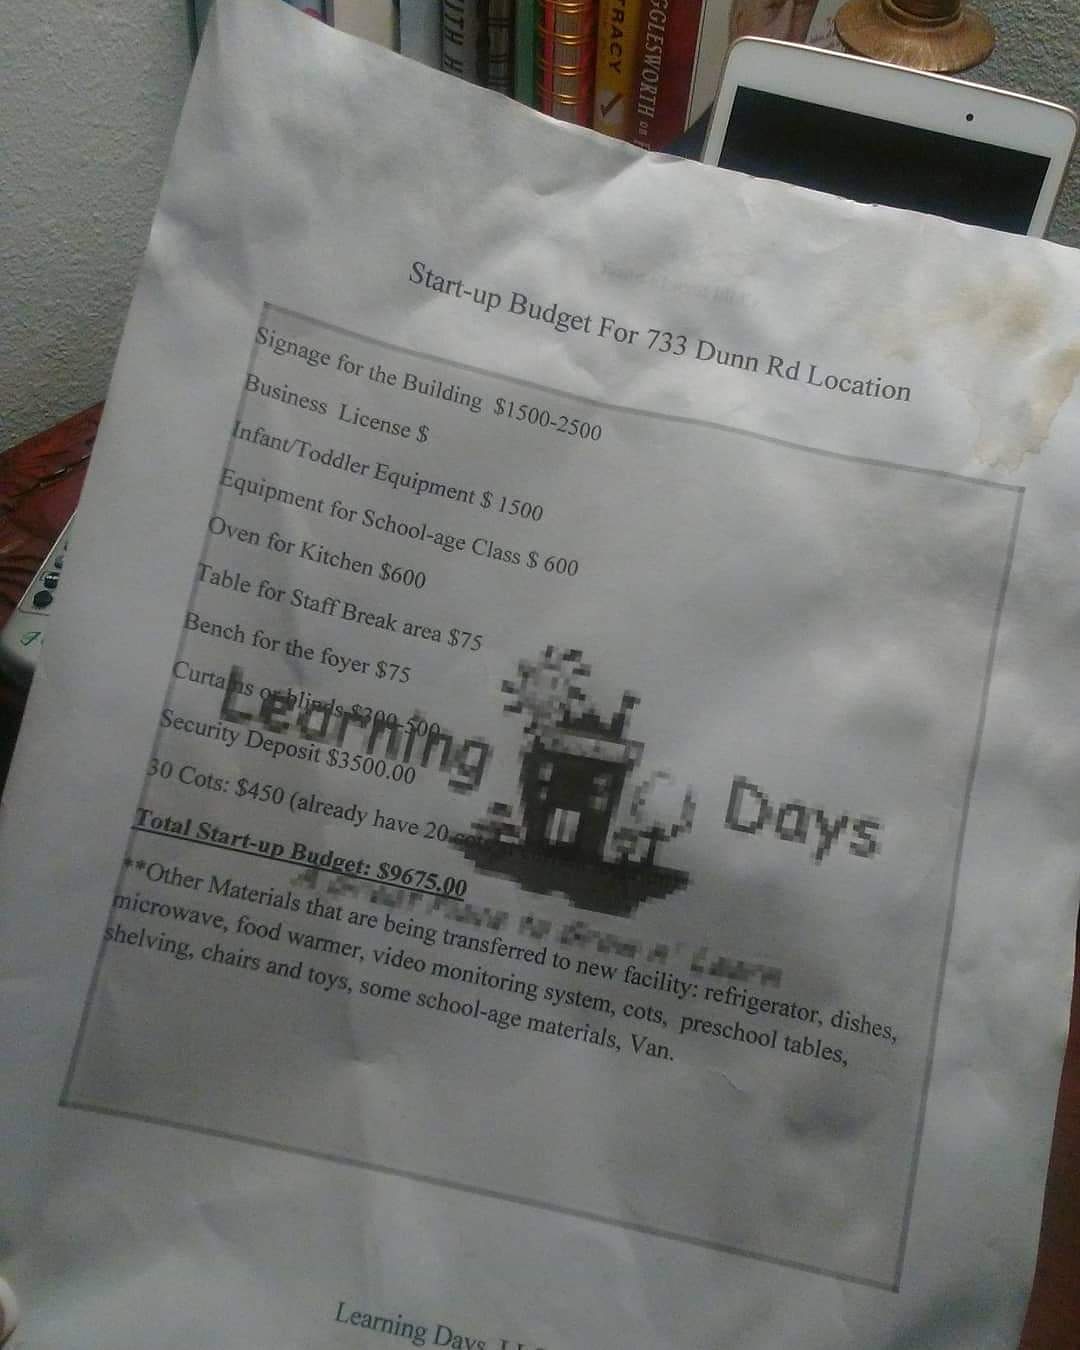 TRACY
GGLESWORTH on
Start-up Budget For 733 Dunn Rd Location
Signage for the Building $1500-2500
Business License $
Infant/Toddler Equipment $ 1500
Equipment for School-age Class $ 600
Oven for Kitchen $600
Table for Staff Break area $75
Bench for the foyer $75
Curtains or blinds $300-500
Security Deposit $3500.00
30 Cots: $450 (already have 20
Total Start-up Budget: $9675.00
**Other Materials that are being transferred to new facility: refrigerator, dishes,
microwave, food warmer, video monitoring system, cots, preschool tables,
shelving, chairs and toys, some school-age materials, Van.
Learning Days
A Great Place to Grow n' Learn
Learning Days